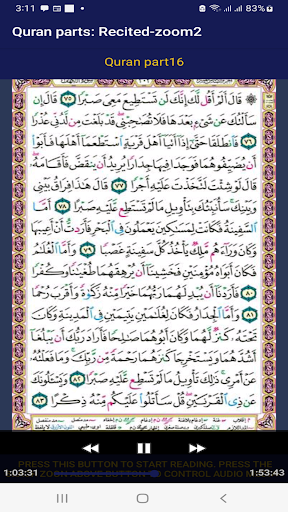 3:11
Quran parts: Recited-zoom2
Quran part16
قَالَ أَلَمْ أَقُل لَّكَ إِنَّكَ لَن تَسْتَطِيعَ مَعِيَ صَبْرًا ٧٥ قَالَ إِن
سَأَلْتُكَ عَن شَيْءٍ بَعْدَهَا فَلَا تُصَاحِبْنِي قَدْ بَلَغْتَ مِن لَّدُنِّي عُذْرًا
٧٦ فَانطَلَقَا حَتَّىٰ إِذَا أَتَيَا أَهْلَ قَرْيَةٍ اسْتَطْعَمَا أَهْلَهَا فَأَبَوْا
أَن يُضَيِّفُوهُمَا فَوَجَدَا فِيهَا جِدَارًا يُرِيدُ أَن يَنقَضَّ فَأَقَامَهُ
قَالَ لَوْ شِئْتَ لَتَّخَذْتَ عَلَيْهِ أَجْرًا ٧٧ قَالَ هَٰذَا فِرَاقُ بَيْنِي
وَبَيْنِكَ سَأُنَبِّئُكَ بِتَأْوِيلِ مَا لَمْ تَسْتَطِع عَّلَيْهِ صَبْرًا ٧٨ أَمَّا
السَّفِينَةُ فَكَانَتْ لِمَسَاكِينَ يَعْمَلُونَ فِي الْبَحْرِ فَأَرَدتُّ أَنْ أَعِيبَهَا
وَكَانَ وَرَاءَهُم مَّلِكٌ يَأْخُذُ كُلَّ سَفِينَةٍ غَصْبًا ٧٩ وَأَمَّا الْغُلَامُ
فَكَانَ أَبَوَاهُ مُؤْمِنَيْنِ فَخَشِينَا أَن يُرْهِقَهُمَا طُغْيَانًا وَكُفْرًا
٨٠ فَأَرَدْنَا أَن يُبْدِلَهُمَا رَبُّهُمَا خَيْرًا مِّنْهُ زَكَاةً وَأَقْرَبَ رُحْمًا
٨١ وَأَمَّا الْجِدَارُ فَكَانَ لِغُلَامَيْنِ يَتِيمَيْنِ فِي الْمَدِينَةِ وَكَانَ
تَحْتَهُ كَنزٌ لَّهُمَا وَكَانَ أَبُوهُمَا صَالِحًا فَأَرَادَ رَبُّكَ أَن يَبْلُغَا
أَشُدَّهُمَا وَيَسْتَخْرِجَا كَنزَهُمَا رَحْمَةً مِّن رَّبِّكَ وَمَا فَعَلْتُهُ
عَنْ أَمْرِي ذَٰلِكَ تَأْوِيلُ مَا لَمْ تَسْطِع عَّلَيْهِ صَبْرًا ٨٢ وَيَسْأَلُونَكَ
عَن ذِي الْقَرْنَيْنِ قُلْ سَأَتْلُو عَلَيْكُم مِّنْهُ ذِكْرًا ٨٣
1:03:31
1:53:43
PRESS THIS BUTTON TO START READING. PRESS THE
ZOOM ABOVE BUTTON CONTROL AUDIO